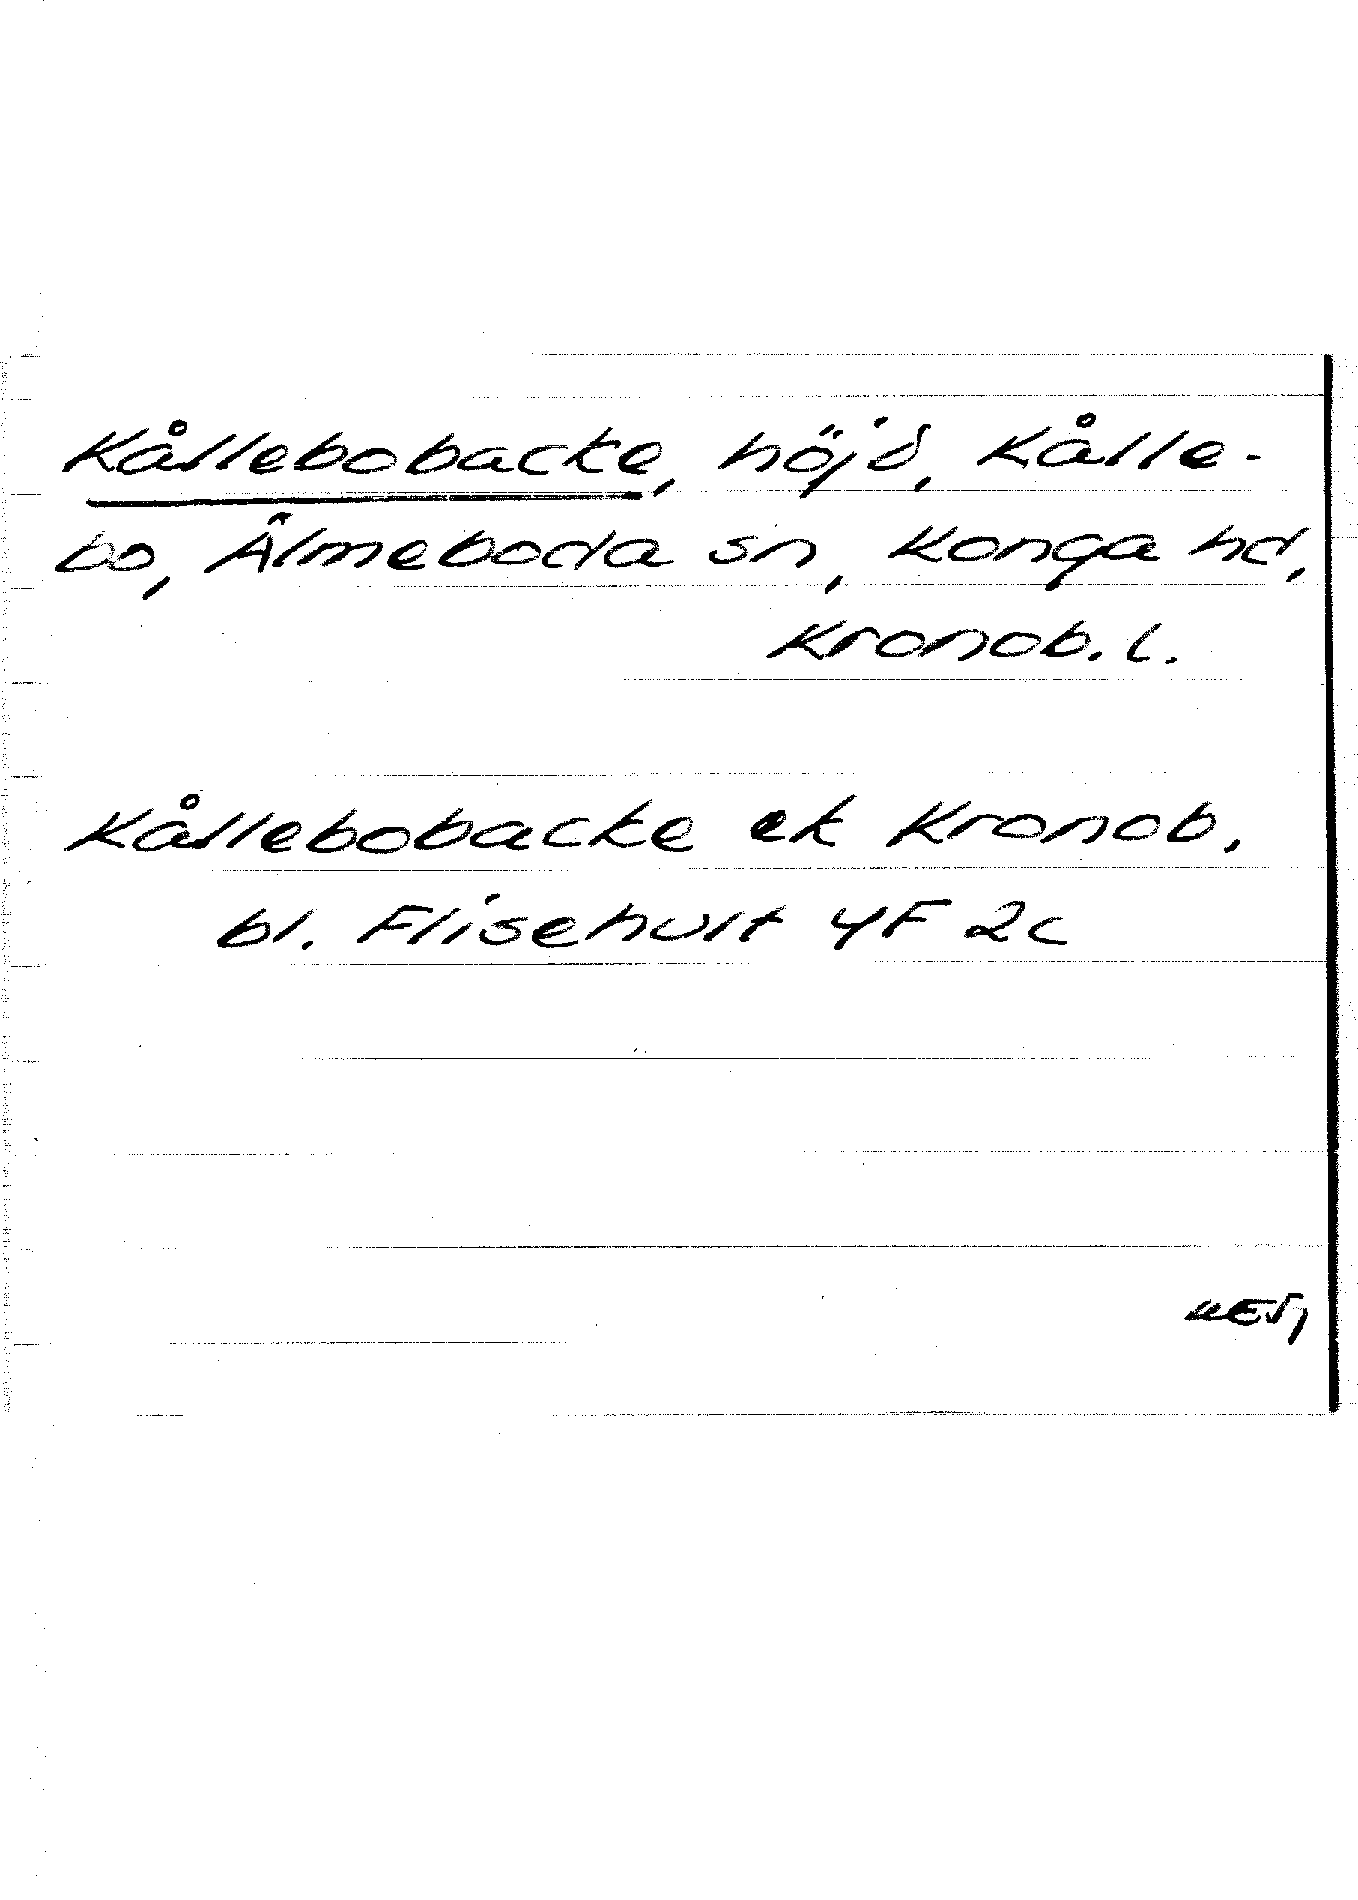 Kållebobacke, höjd, Kålle-
bo, Älmeboda sn, Konga hd,
Kronob. l.
Kållebobacke ek Kronob.
bl. Flisehult 4F 2c